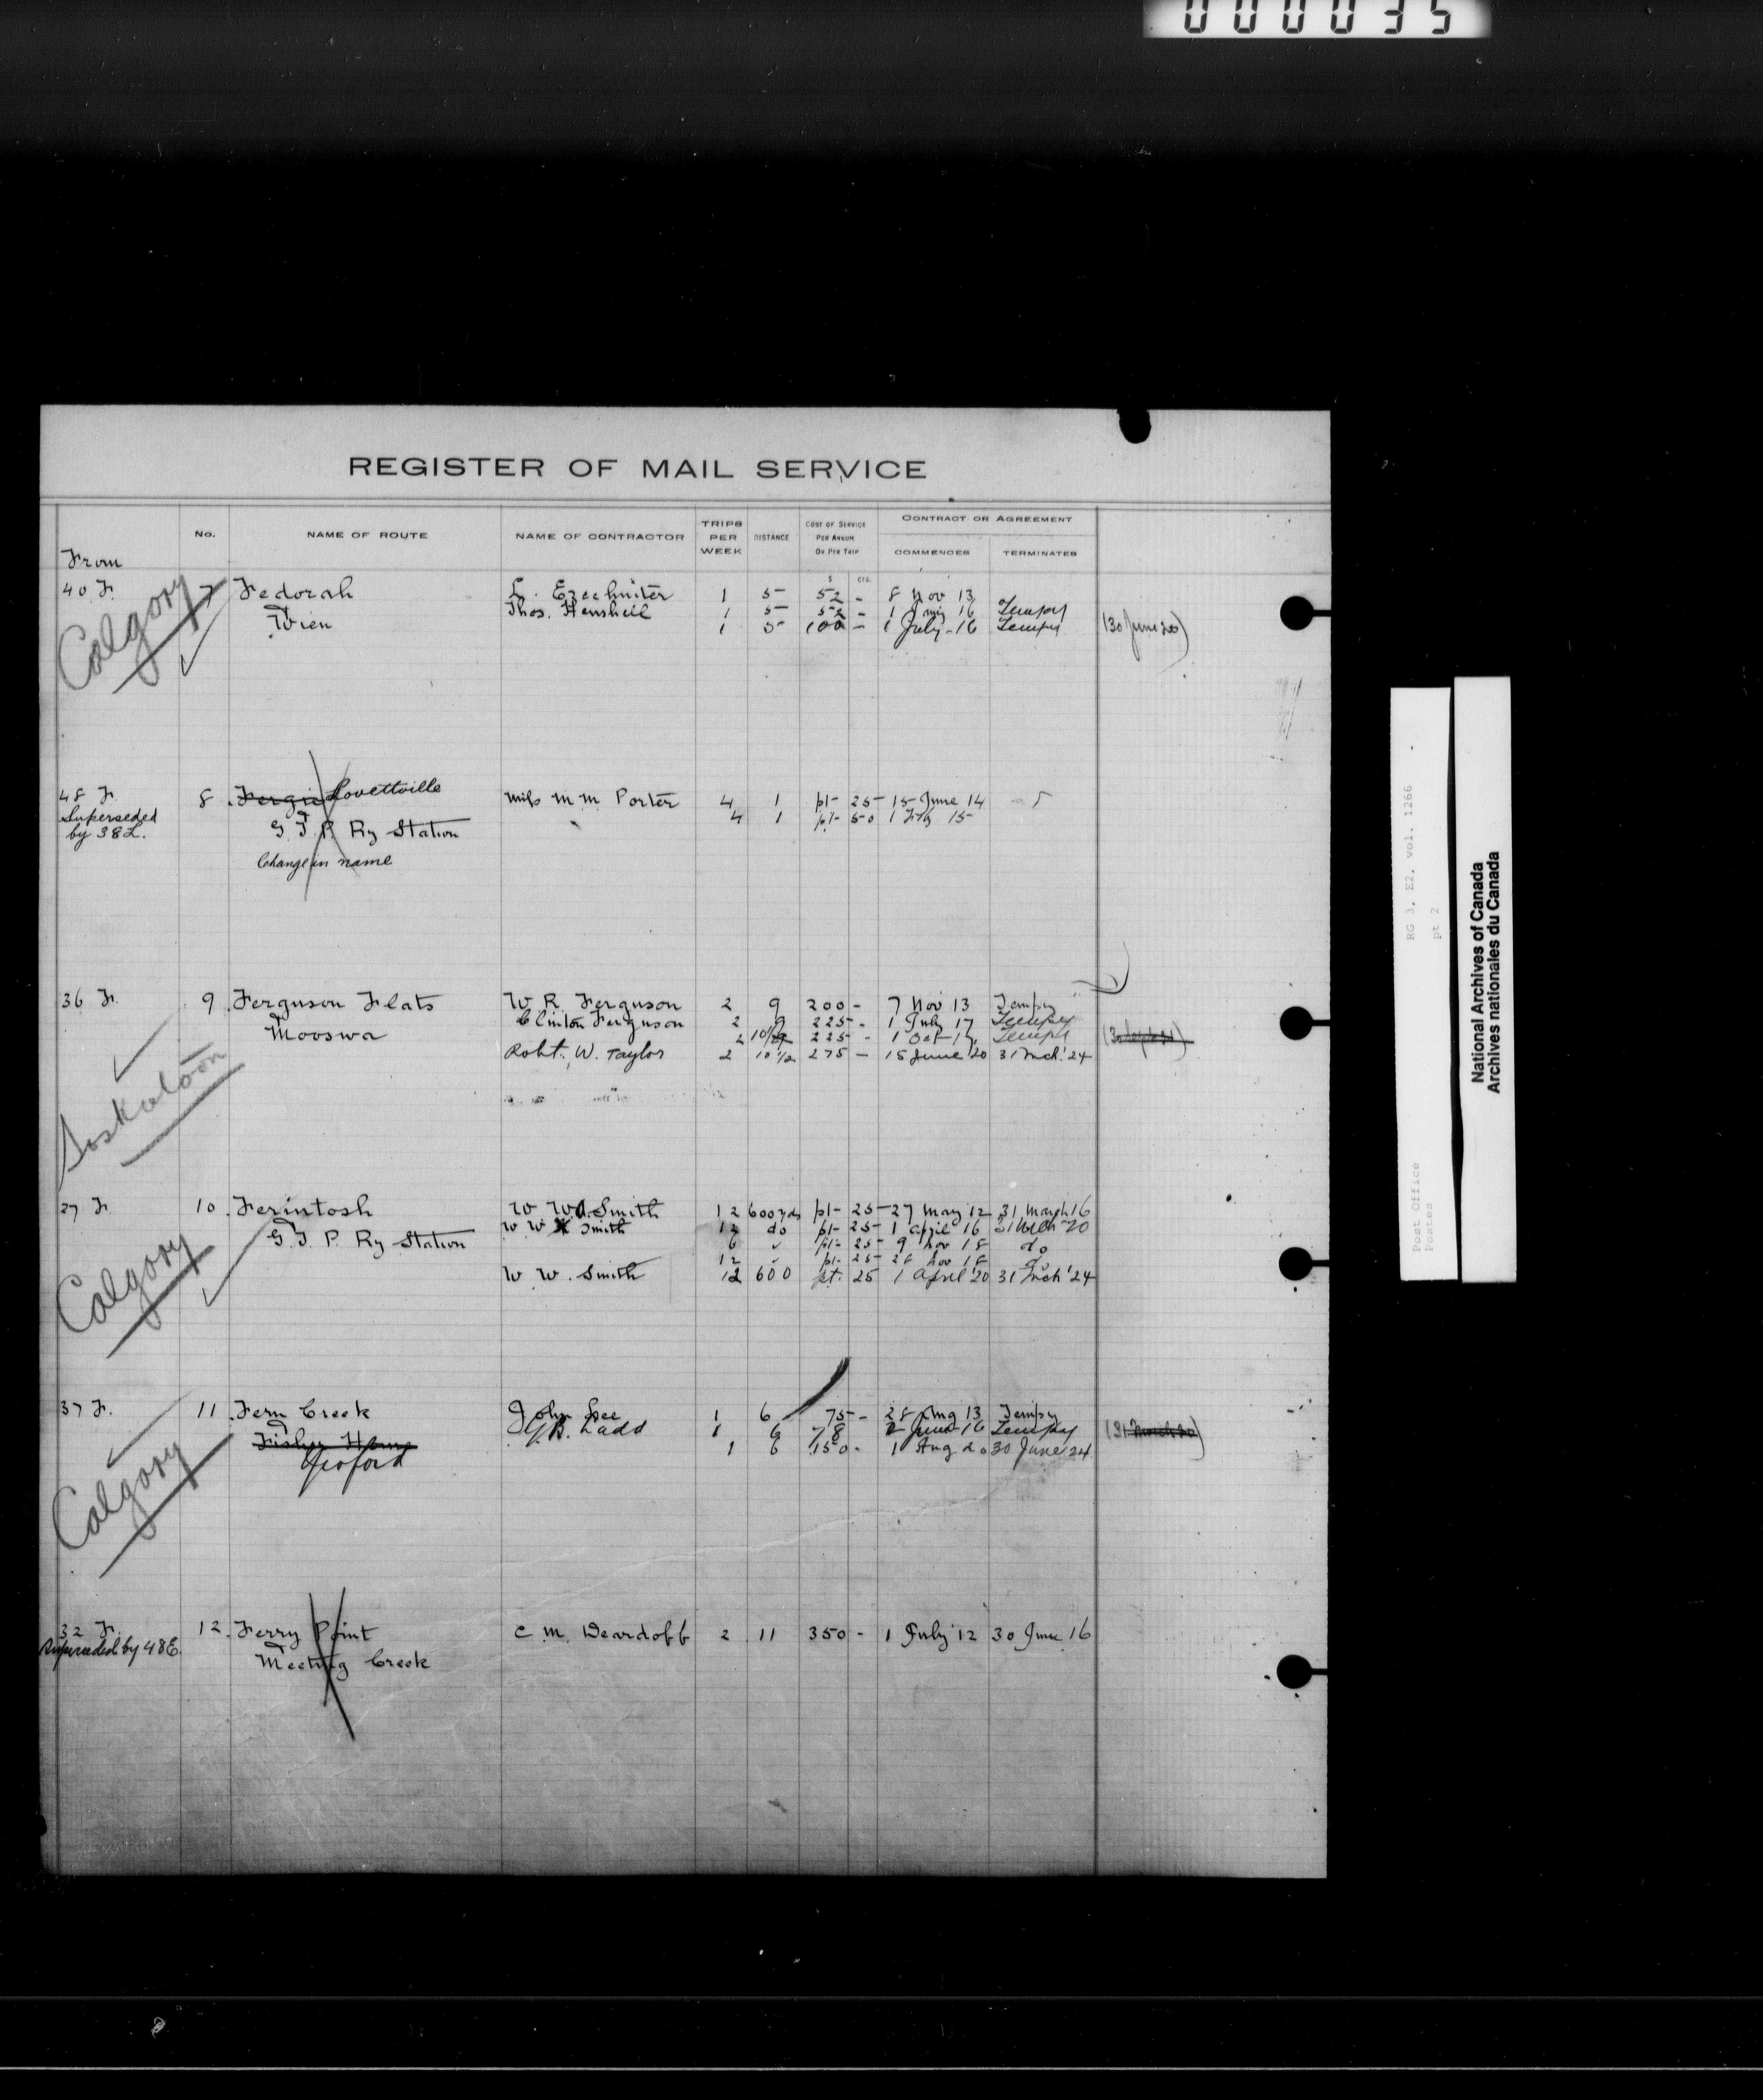 000035
REGISTER OF MAIL SERVICE
From
No.
NAME OF ROUTE
NAME OF CONTRACTOR
TRIPS PER WEEK
DISTANCE
COST OF SERVICE PER ANNUM OR PER TRIP
CONTRACT OR AGREEMENT
COMMENCES
TERMINATES
$ CTS.
40 F. 7 Fedorah 1 5 52 - 8 Nov 13
Thos. Henshell 1 5 52 - 1 16 Tempy
Wien 1 5 100 - 1 July 16 Tempy (30 June 20)
Calgary
48 F 8. Lovettville Miss M. M. Porter 4 1 pt 25 15 June 14
Superseded 4 1 pt 50 1 Feb 15
by 38L. G.T.P. Ry Station
Change in name
36 F. 9. Ferguson Flats W. R. Ferguson 2 9 200 - 7 Nov 13 Tempy
Clinton Ferguson 2 9 225 - 1 July 17 Tempy
Mooswa 2 10 1/2 225 - 1 Oct 17 Tempy
Robt. W. Taylor 2 10 1/2 275 - 15 June 20 31 Mch. '24
Saskatoon
27 F. 10. Ferintosh W. W. A. Smith 12 600 yds pt 25 27 May '12 31 March 16
W. W. Smith 12 do pt 25 1 April 16 31 Mch 20
G.T.P. Ry Station 6 " pt 25 9 Nov 18 do
12 " pt 25 28 Nov 18 do
W. W. Smith 12 600 pt. 25 1 April '20 31 Mch '24
Calgary
37 F. 11. Fern Creek John Lee 1 6 75 - 28 Aug 13 Tempy
Ladd 1 6 78 2 June 16 Tempy (31 March 20)
Fisher Home 1 6 150 - 1 Aug 20 30 June 24
Calgary
32 F. 12. Ferry Point C. M. Deardoff 2 11 350 - 1 July '12 30 June 16
Superseded by 48E.
Meeting Creek
RG 3, E2, vol. 1266
pt 2
Post Office
Postes
National Archives of Canada
Archives nationales du Canada